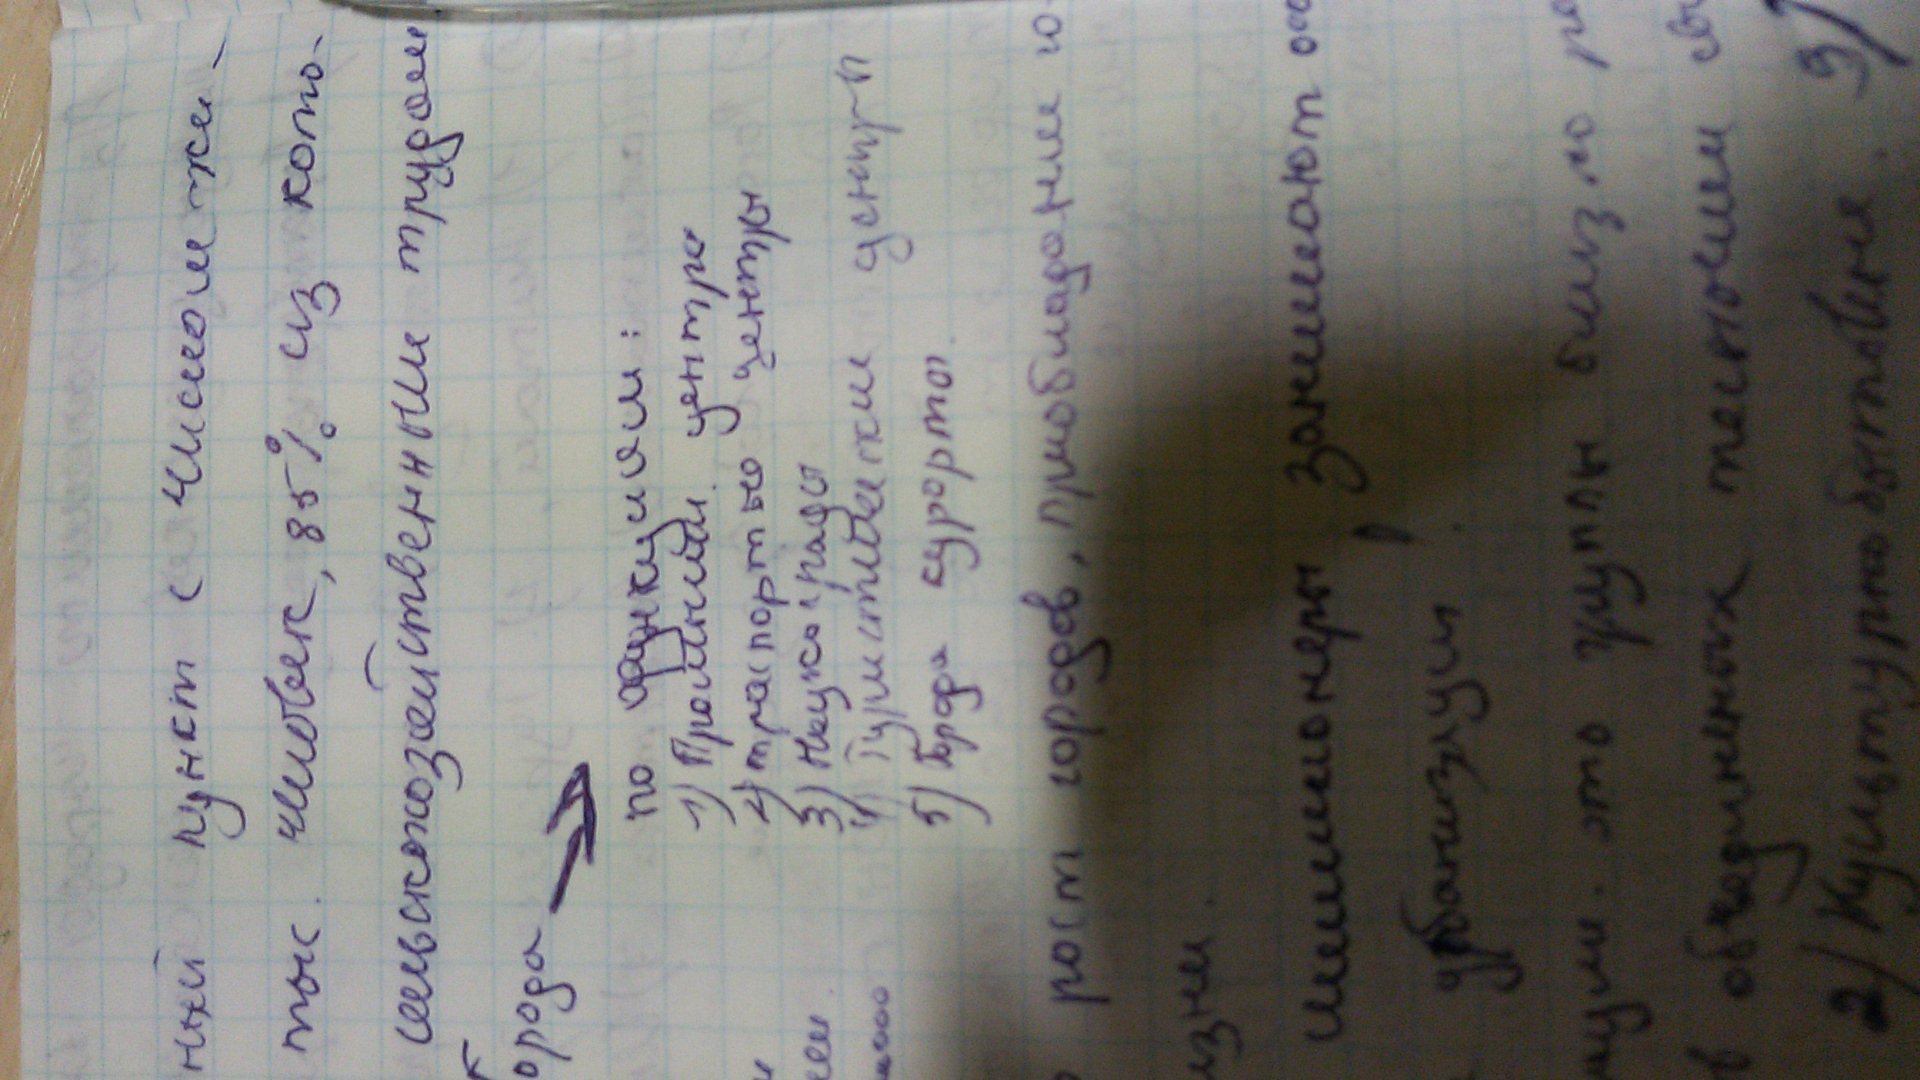 ный пункт с числом жи-
тыс. человек, 85% из кото-
сельскохозяйственным трудом
орода
по функциям:
1) Промышл. центры
2) транспортые центры
3) Науко-грады
4) Туристические центры
5) Города курорты.
рост городов, приобладание го-
изни.
миллионеры, занимают
урбанизации.
это группы близко
в объединеных тесными
2) Культурно бытовые. 3)